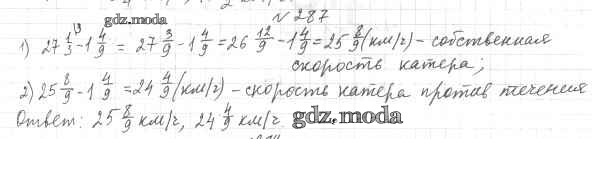 № 287
gdz.moda
1) 27 1/3 \3 - 1 4/9 = 27 3/9 - 1 4/9 = 26 12/9 - 1 4/9 = 25 8/9 (км/г) - собственная
скорость катера;
2) 25 8/9 - 1 4/9 = 24 4/9 (км/г) - скорость катера против течения
Ответ: 25 8/9 км/г, 24 4/9 км/г. gdz.moda